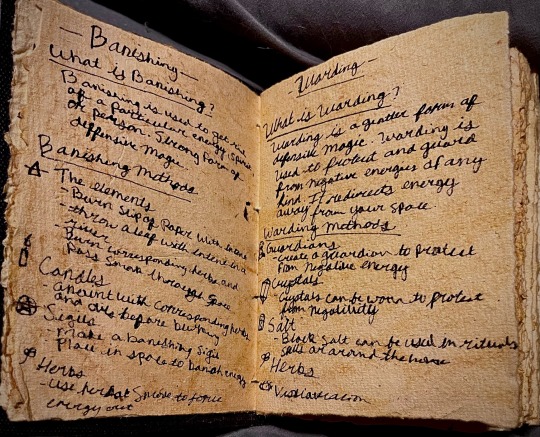 - Banishing -
What is Banishing?
Banishing is used to get rid
of a particular energy, spirit
or person. Strong form of
defensive magic.
Banishing Methods
The elements
- Burn slip of paper with intent
- throw a leaf with intent in a
river
- Burn corresponding herbs and
pass smoke through space
Candles
- anoint with corresponding herbs
and oils before burning
Sigils
- make a banishing sigil
Place in space to banish energy
Herbs
- use herbal smoke to force
energy out
- Warding -
What is Warding?
Warding is a gentler form of
defensive magic. Warding is
used to protect and guard
from negative energies of any
kind. It redirects energy
away from your space
Warding Methods
Guardians
- create a guardian to protect
from negative energy
Crystals
- Crystals can be worn to protect
from negativity
Salt
- Black Salt can be used in rituals
or around the house
Herbs
Visualization